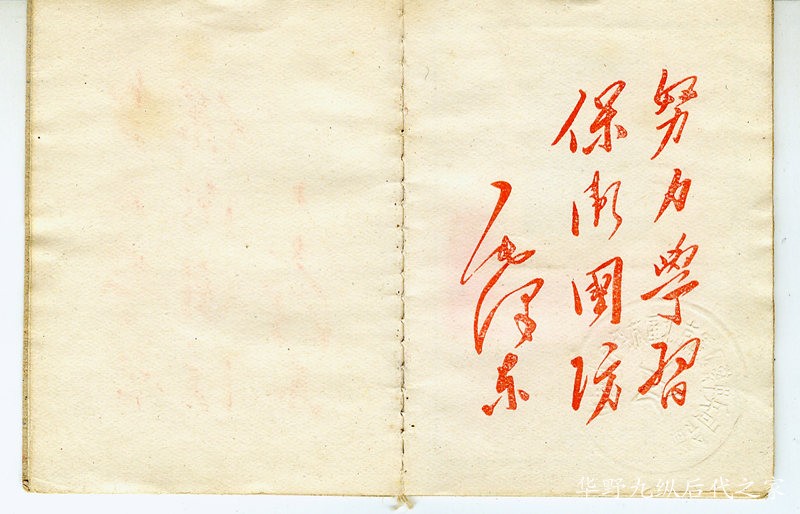 努力學習
保衛國防
毛澤东
华野九纵后代之家